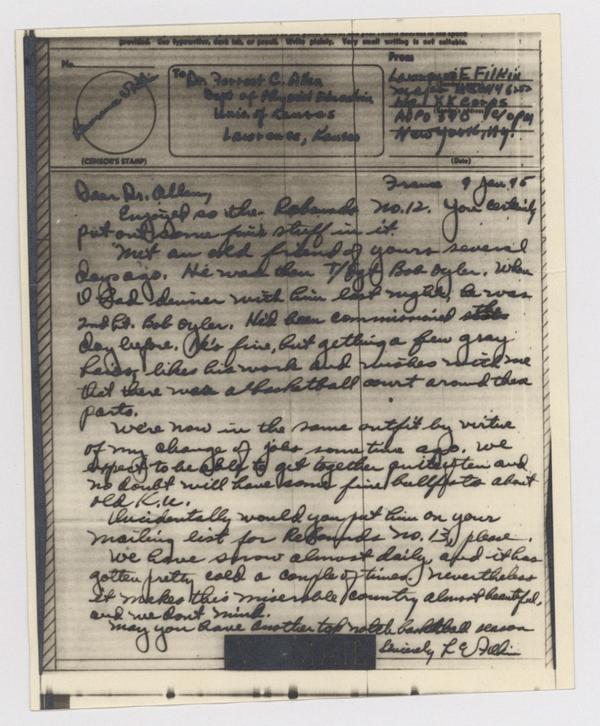 provided. Use typewriter, dark ink, or pencil. Write plainly. Very small writing is not suitable.
No.
To Dr. Forrest C. Allen
Dept of Physical Education
Univ. of Kansas
Lawrence, Kansas
From
Lawrence E Filkin
Hq XX Corps
APO 340 c/o PM
New York, NY.
(CENSOR'S STAMP)
(Date)
France 9 Jan 45
Dear Dr. Allen,
Enjoyed so the Rebounds No. 12. You certainly
put out some fine stuff in it.
Met an old friend of yours several
days ago. He was then T/Sgt Bob Oyler. When
I had dinner with him last night, he was
2nd Lt. Bob Oyler. He'd been commissioned the
day before. He's fine, but getting a few gray
hairs, likes his work and wishes with me
that there was a basketball court around these
parts.
We're now in the same outfit by virtue
of my change of jobs some time ago. We
expect to be able to get together quite often and
no doubt will have some fine bullfests about
old K.U.
Incidentally would you put him on your
mailing list for Rebounds No. 13, please.
We have snow almost daily and it has
gotten pretty cold a couple of times. Nevertheless
it makes this miserable country almost beautiful,
and we don't mind.
May you have another top notch basketball season
Sincerely L E Filkin